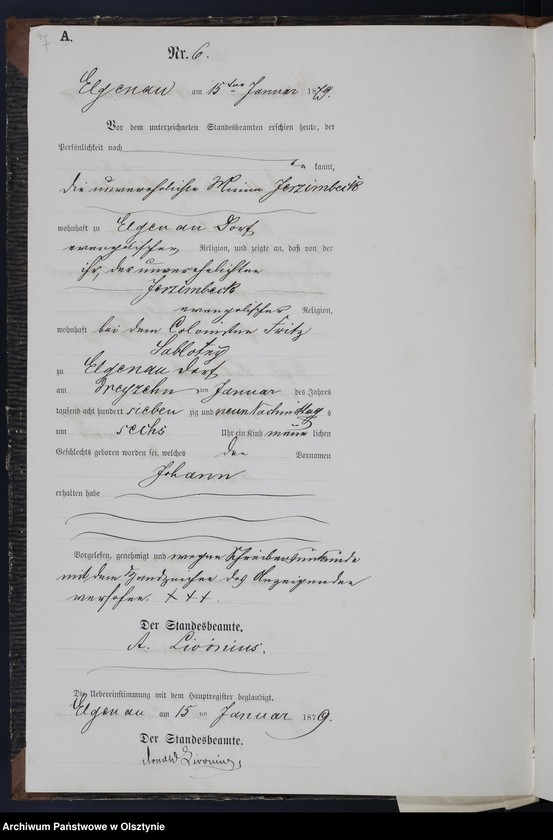 7
A.
Nr. 6.
Elgenau am 15ten Januar 1879.
Vor dem unterzeichneten Standesbeamten erschien heute, der
Persönlichkeit nach
kannt,
die unverehelichte Jerzimbeck
wohnhaft zu Elgenau Dorf
evangelischer Religion, und zeigte an, daß von der
ihr, der unverehelichten
Jerzimbeck
evangelischer Religion,
wohnhaft bei dem Colonisten Fritz
Sablotny
zu Elgenau Dorf
am Dreyzehn ten Januar des Jahres
tausend acht hundert sieben zig und neun Nachmittag s
um sechs Uhr ein Kind männ lichen
Geschlechts geboren worden sei, welches den Vornamen
Johann
erhalten habe
Vorgelesen, genehmigt und wegen Schreibensunkunde
mit dem Handzeichen des Anzeigenden
versehen. + + +.
Der Standesbeamte.
A. Livonius.
Die Uebereinstimmung mit dem Hauptregister beglaubigt.
Elgenau am 15 ten Januar 1879.
Der Standesbeamte.
Arnold Livonius
Archiwum Państwowe w Olsztynie